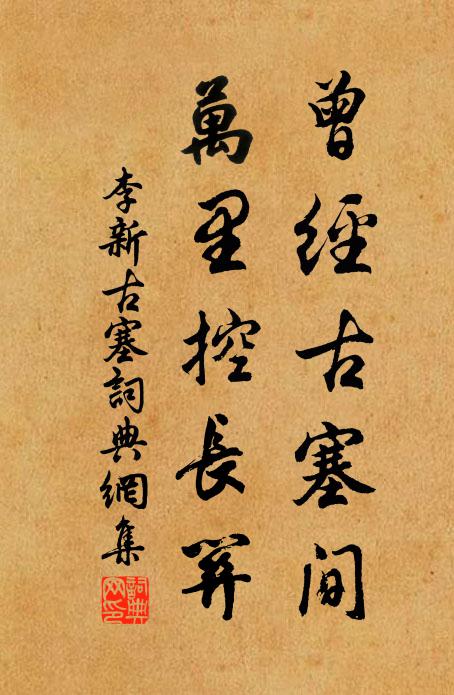 曾經古塞間
萬里控長
李新古塞詞典網集
詞典网印